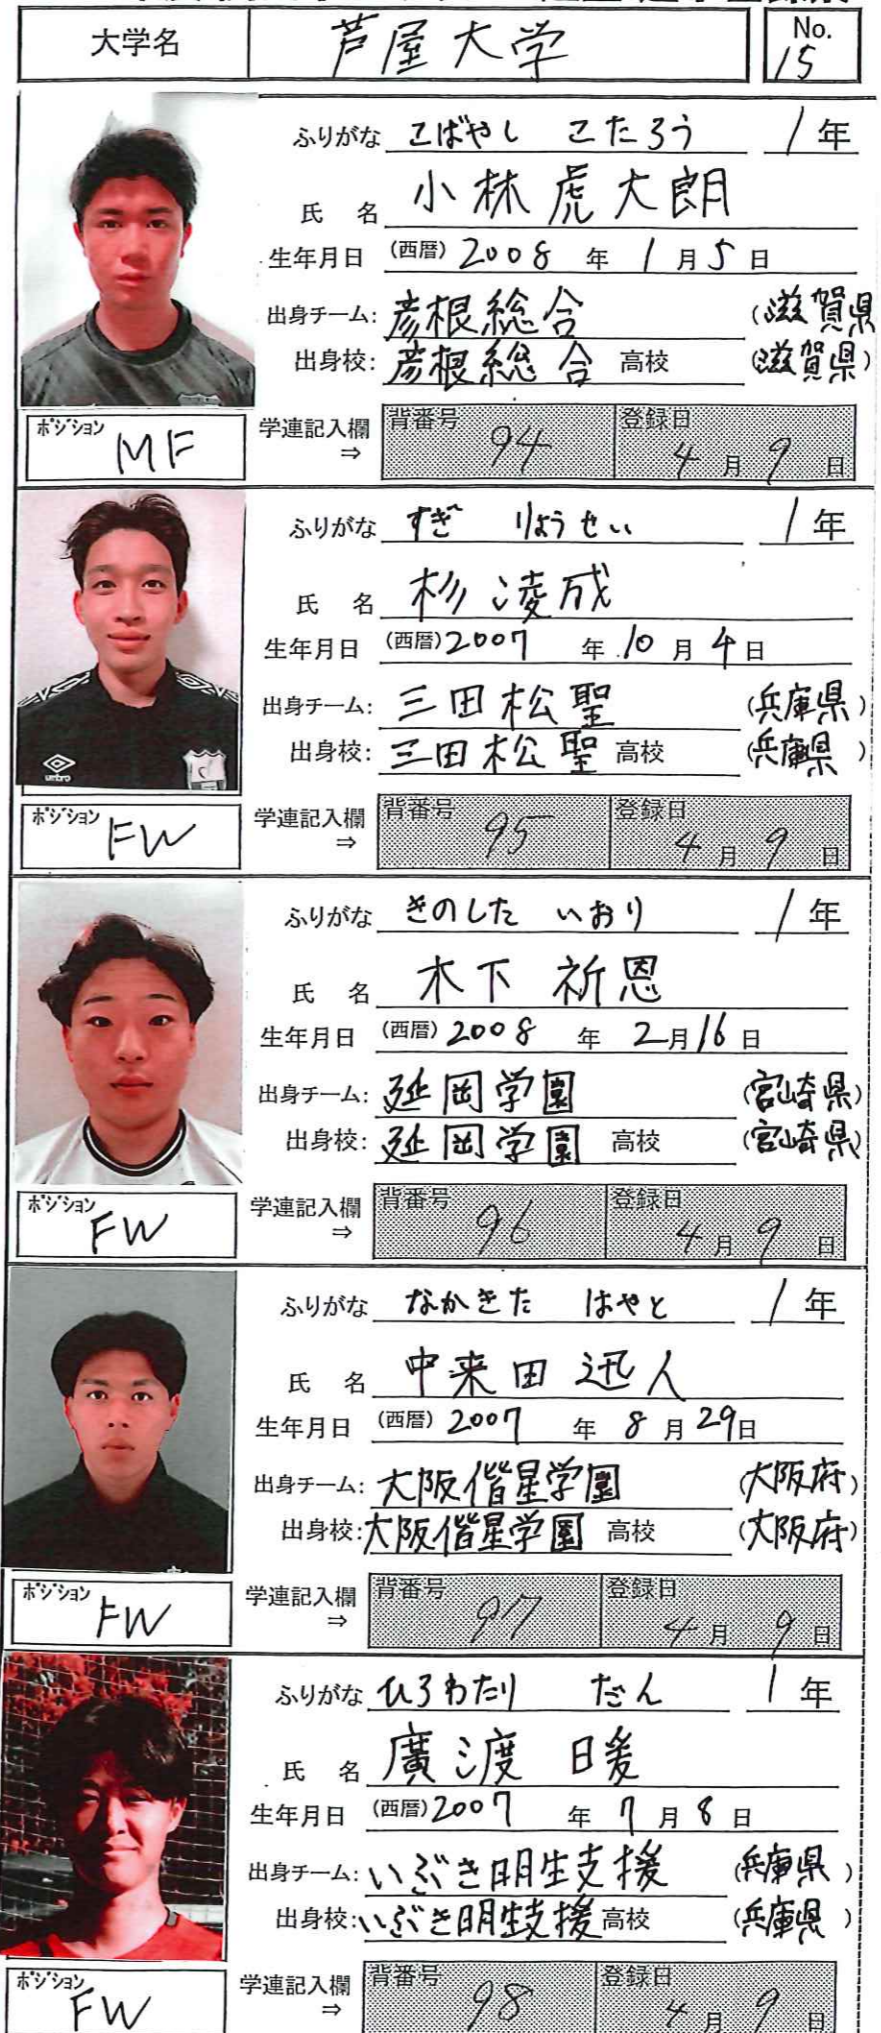 大学名 芦屋大学 No. 15
ふりがな こばやし こたろう 1年
氏名 小林虎太朗
生年月日 (西暦) 2008年 1月5日
出身チーム: 彦根総合 (滋賀県
出身校: 彦根総合 高校 (滋賀県)
ポジション MF 学連記入欄⇒ 背番号 94 登録日 4月9日
ふりがな すぎ りょうせい 1年
氏名 杉凌成
生年月日 (西暦) 2007年 10月4日
出身チーム: 三田松聖 (兵庫県)
出身校: 三田松聖 高校 (兵庫県)
umbro
ポジション FW 学連記入欄⇒ 背番号 95 登録日 4月9日
ふりがな きのした いおり 1年
氏名 木下 祈恩
生年月日 (西暦) 2008年 2月16日
出身チーム: 延岡学園 (宮崎県)
出身校: 延岡学園 高校 (宮崎県)
ポジション FW 学連記入欄⇒ 背番号 96 登録日 4月9日
ふりがな なかきた はやと 1年
氏名 中来田迅人
生年月日 (西暦) 2007年 8月29日
出身チーム: 大阪偕星学園 (大阪府)
出身校: 大阪偕星学園 高校 (大阪府)
ポジション FW 学連記入欄⇒ 背番号 97 登録日 4月9日
ふりがな ひろわたり だん 1年
氏名 廣渡 暖
生年月日 (西暦) 2007年 7月8日
出身チーム: いぶき明生支援 (兵庫県)
出身校: いぶき明生支援 高校 (兵庫県)
ポジション FW 学連記入欄⇒ 背番号 98 登録日 4月9日